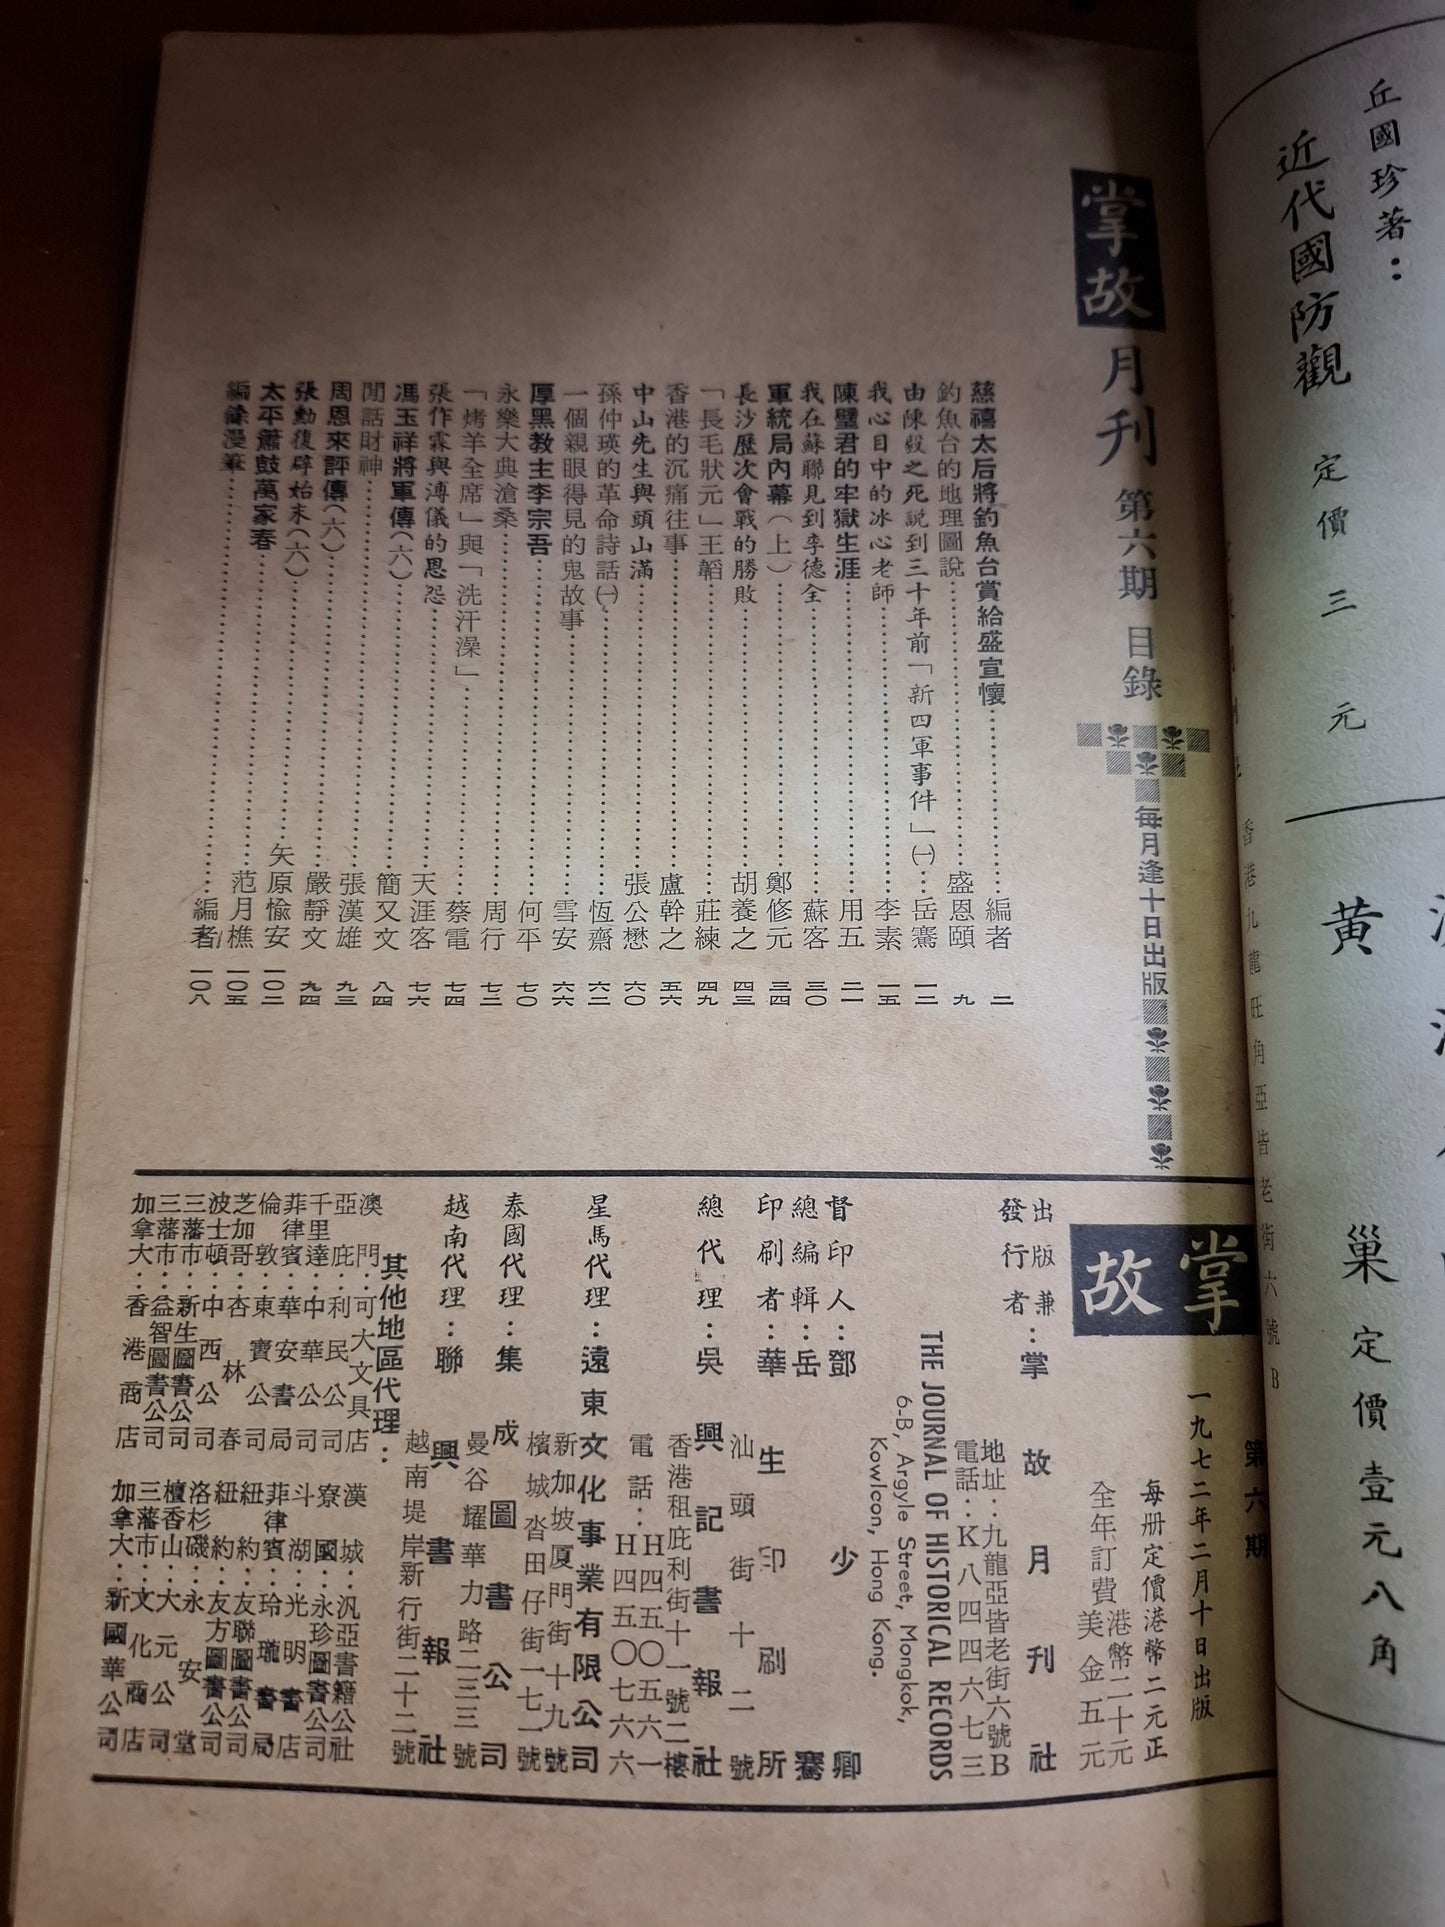 掌故月刊 第六期 目錄
每月逢十日出版
慈禧太后將釣魚台賞給盛宣懷……編者 二
釣魚台的地理圖說……盛恩頤 九
由陳毅之死說到三十年前「新四軍事件」㈠……岳騫 一二
我心目中的冰心老師……李素 一五
陳璧君的牢獄生涯……用五 二一
我在蘇聯見到李德全……蘇客 三〇
軍統局內幕（上）……鄭修元 三四
長沙歷次會戰的勝敗……胡養之 四三
「長毛狀元」王韜……莊練 四九
香港的沉痛往事……盧幹之 五六
中山先生與頭山滿……張公懋 六〇
孫仲瑛的革命詩話㈠……恆齋 六二
一個親眼得見的鬼故事……雪安 六六
厚黑教主李宗吾……何平 七〇
永樂大典滄桑……周行 七二
「烤羊全席」與「洗汗澡」……蔡電 七四
張作霖與溥儀的恩怨……天涯客 七六
馮玉祥將軍傳（六）……簡又文 八四
閒話財神……張漢雄 九三
周恩來評傳（六）……嚴靜文 九四
張勳復辟始末（六）……矢原愉安 一〇二
太平簫鼓萬家春……范月樵 一〇五
編餘漫筆……編者 一〇八
掌故
第六期
一九七二年二月十日出版
每冊定價港幣二元正
全年訂費 港幣二十元
美金五元
出版兼
發行者：掌故月刊社
地址：九龍亞皆老街六號B
電話：K八四四六七三
THE JOURNAL OF HISTORICAL RECORDS
6-B, Argyle Street, Mongkok,
Kowlcon, Hong Kong.
督印人：鄧少卿
總編輯：岳騫
印刷者：華生印刷所
汕頭街十二號
總代理：吳興記書報社
香港租庇利街十一號二樓
電話：H四五〇五六一
H四五〇七六六
星馬代理：遠東文化事業有限公司
新加坡廈門街十九號
檳城沓田仔街一七一號
泰國代理：集成圖書公司
曼谷耀華力路二三三號
越南代理：聯興書報社
越南堤岸新行街二十二號
其他地區代理：
澳門：可大文具店
亞庇：利民公司
千里達：中華公司
菲律賓：華安書局
倫敦：東寶公司
芝加哥：杏林春
波士頓：中西公司
三藩市：新生圖書公司
三藩市：益智圖書公司
加拿大：香港商店
漢城：汎亞書籍公社
寮國：永珍圖書公司
斗湖：光明書店
菲律賓：玲瓏書局
紐約：友聯圖書公司
紐約：友方圖書公司
洛杉磯：永安堂
檀香山：大元公司
三藩市：文化商店
加拿大：新國華公司
丘國珍著：
近代國防觀 定價三元
黄
巢 定價壹元八角
香港九龍旺角亞皆老街六號B